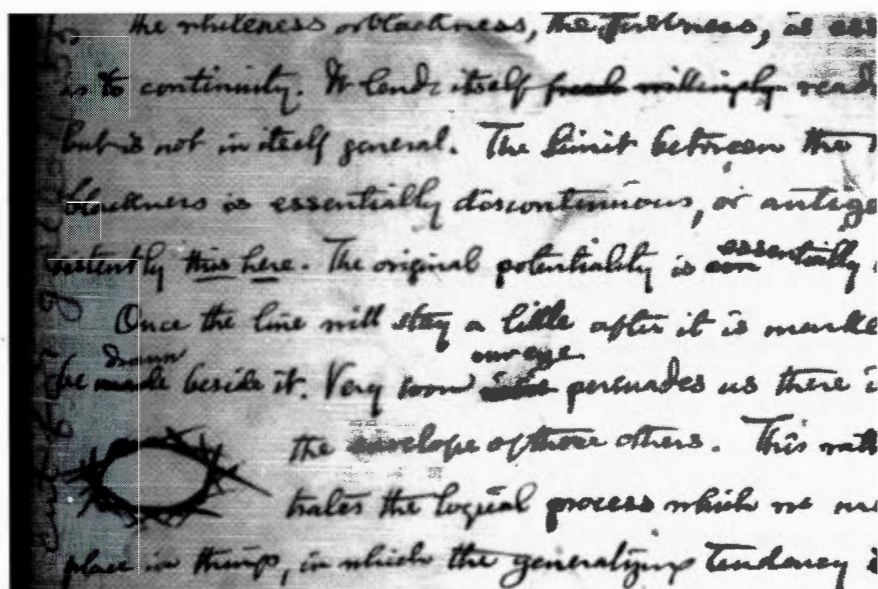 the whiteness or blackness, the firstness, is ess
is to continuity. It lends itself freel willingly read
but is not in itself general. The limit between the
blackness is essentially discontinuous, or antige
sistently this here. The original potentiality is essentially
Once the line will stay a little after it is marke
drawn our eye
be made beside it. Very soon persuades us there i
the envelope of those others. This
trates the logical process which we
place in things, in which the generalizing tendency